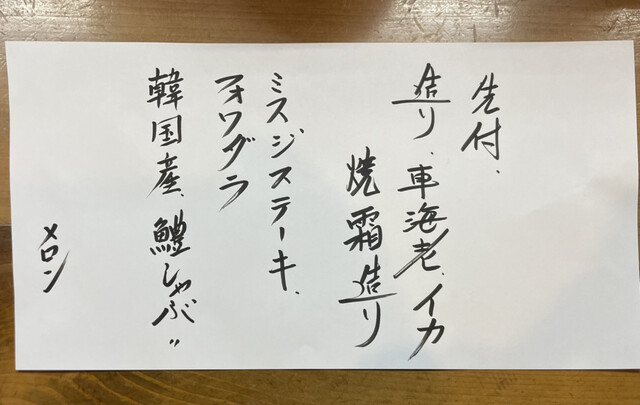 先付、
造り、車海老、イカ
焼霜造り
ミスジステーキ、
フォワグラ
韓国産、鱧しゃぶ〃
メロン